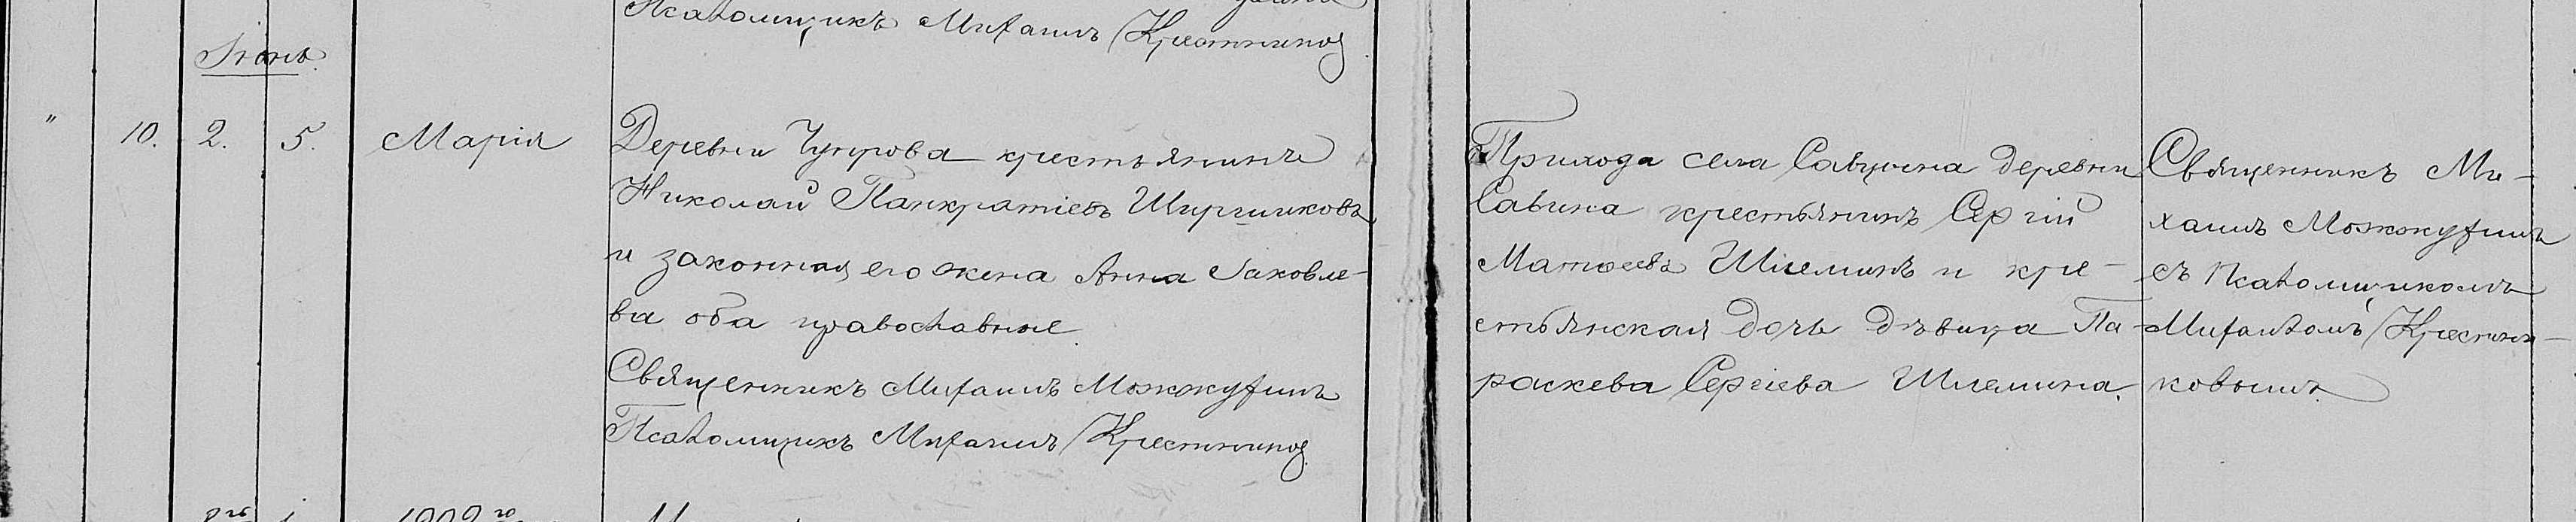 Псаломщикъ Михаилъ Крестниковъ
Іюнь.
" 10. 2. 5. Марія
Деревни Чупрова крестьянинъ
Николай Панкратіевъ Ширшиковъ
и законная его жена Анна Іаковле-
ва оба православные.
Священникъ Михаилъ Можжухинъ
Псаломщикъ Михаилъ Крестниковъ
Прихода села Савцына деревни
Савина крестьянинъ Сергій
Матѳеевъ Шлеминъ и кре-
стьянская дочь дѣвица Па-
раскева Сергіева Шлемина.
Священникъ Ми-
хаилъ Можжухинъ
съ псаломщикомъ
Михаиломъ Крестни-
ковымъ.